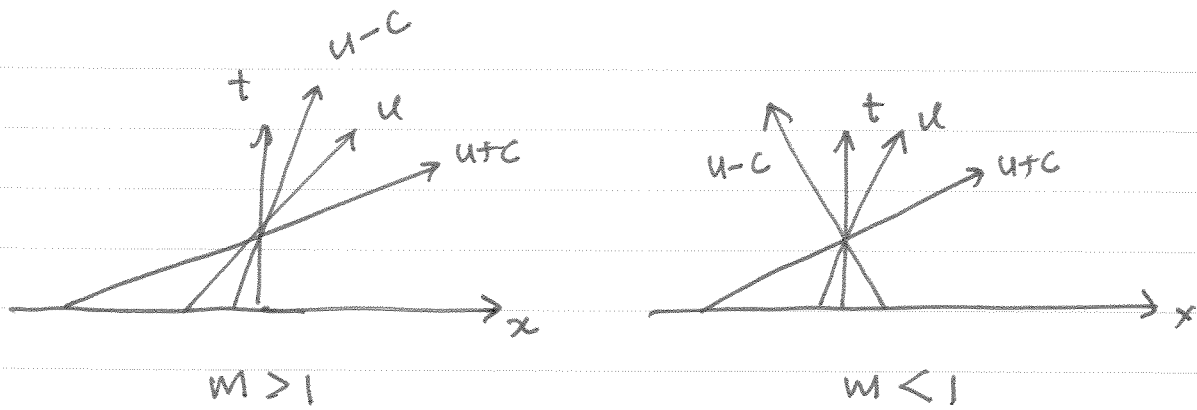 u-c
t
u
u+c
x
m > 1
u-c
t
u
u+c
x
m < 1